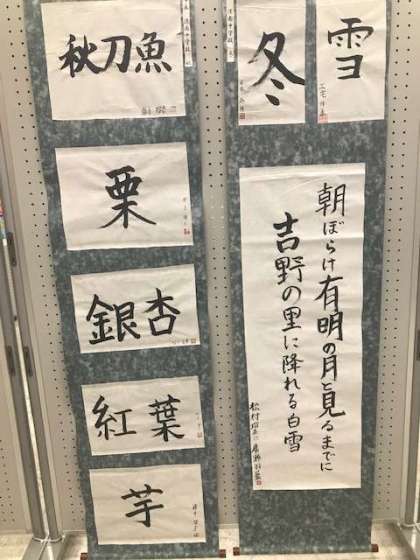 雪
冬
朝ぼらけ有明の月と見るまでに
吉野の里に降れる白雪
秋刀魚
栗
銀杏
紅葉
芋